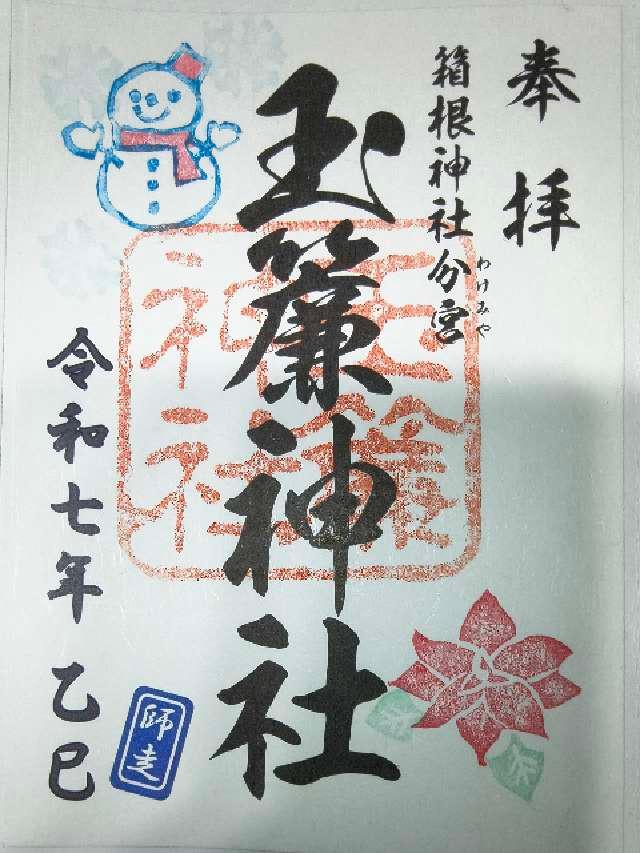 奉拝
箱根神社分宮
わけみや
玉簾神社
玉簾神社
令和七年 乙巳
師走